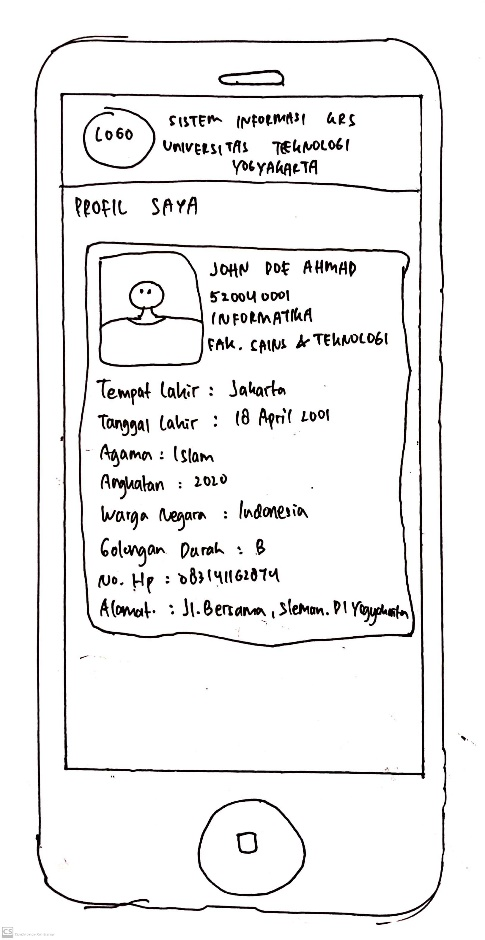 LOGO
SISTEM INFORMASI KRS
UNIVERSITAS TEKNOLOGI
YOGYAKARTA
PROFIL SAYA
JOHN DOE AHMAD
520040001
INFORMATIKA
FAK. SAINS & TEKNOLOGI
Tempat Lahir : Jakarta
Tanggal Lahir : 18 April 2001
Agama : Islam
Angkatan : 2020
Warga Negara : Indonesia
Golongan Darah : B
No. Hp : 083141162874
Alamat. : Jl. Bersama, Sleman. DI Yogyakarta
CS